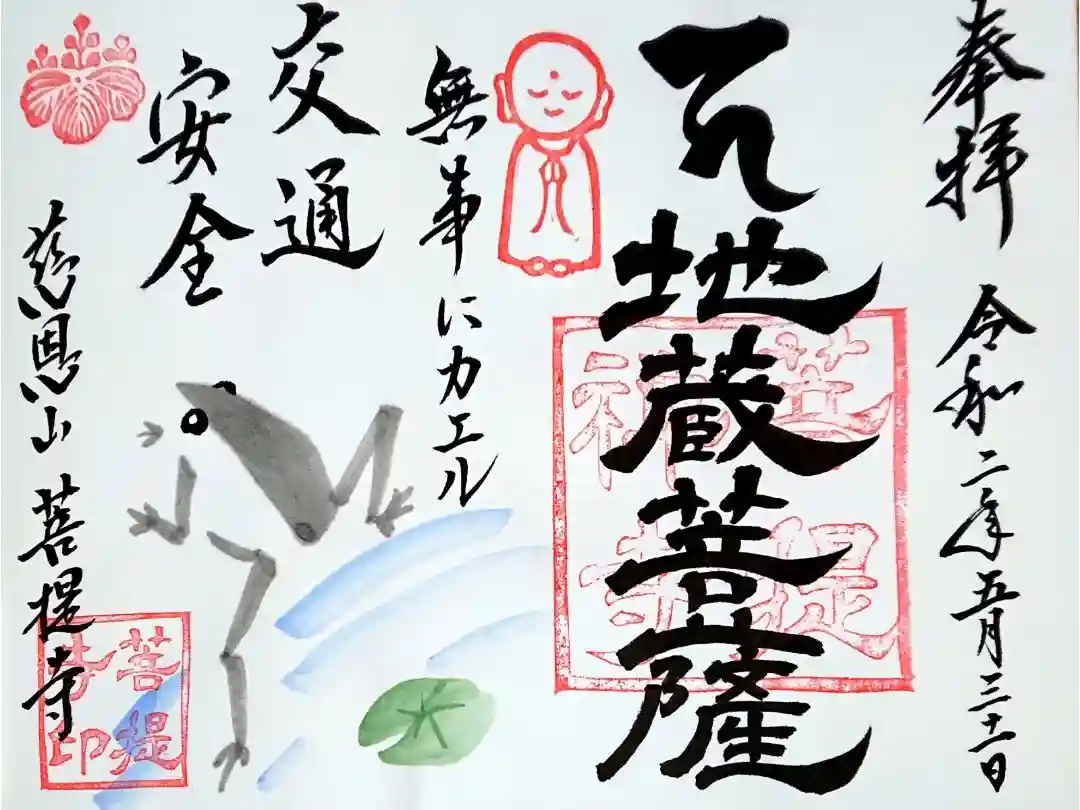 奉拝 令和二年五月三十一日
地蔵菩薩
無事にカエル
交通
安全
慈恩山 菩提寺
菩提
寺印